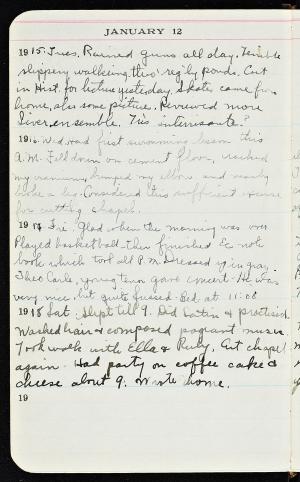 JANUARY 12
1915. Tues. Rained guns all day. Terrible
slippery walking thro' reg'ly ponds. Cut
in Hist. for lecture yesterday. Skate came fr.
home, also some picture. Reviewed more
ensemble. Très intéressante?
1916 Wed. Had first swimming lesson this
A.M. Fell down on cement floor, cracked
my cranium, bumped my elbow and nearly
broke a leg. Considered this sufficient excuse
for cutting chapel.
1917 Fri. Glad when the morning was over
Played basketball then finished Ec note
book which took all P.M. Dressed up in gray.
Theo Carle, young tenor gave concert. He was
very nice but quite fussed. Bed at 11:08
1918 Sat. Slept till 9. Did Latin & practised
Washed hair & composed pageant music.
Took walk with Ella & Ruby. Cut chapel
again. Had party on coffee cake &
cheese about 9. Wrote home.
19